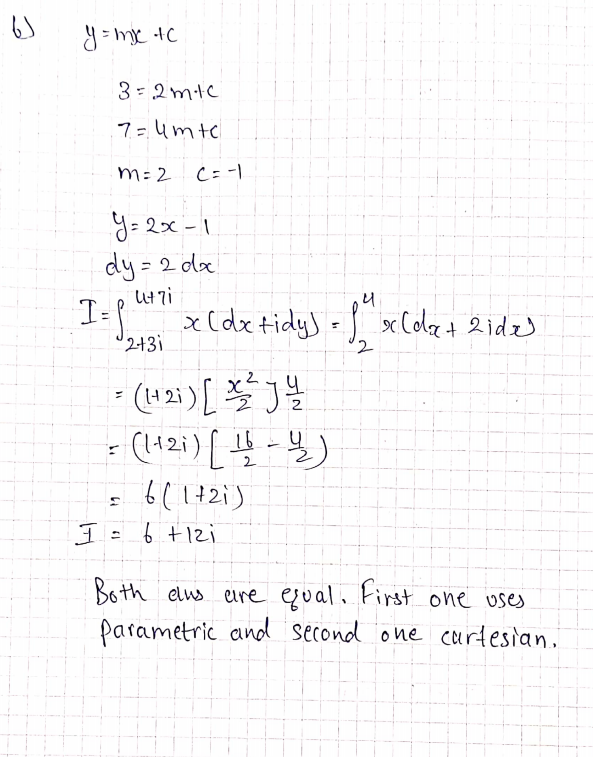 b) y = mx + c
3 = 2m+c
7 = 4m+c
m = 2 c = -1
y = 2x - 1
dy = 2 dx
I = ∫_{2+3i}^{4+7i} x(dx + idy) = ∫_2^4 x(dx + 2idx)
= (1+2i) [x²/2]_2^4
= (1+2i) [16/2 - 4/2)
= 6(1+2i)
I = 6 + 12i
Both ans are equal. First one uses
parametric and second one cartesian.